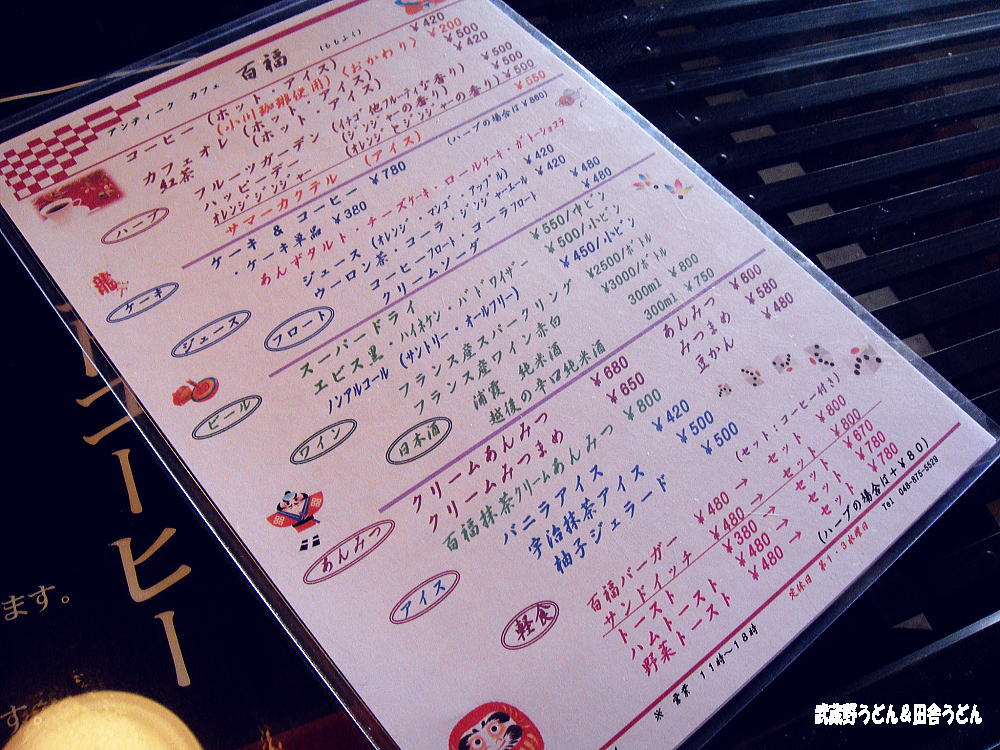 百福 (ももふく)
アンティーク カフェ
コーヒー (ホット・アイス) ¥420
(小川珈琲使用) 〈おかわり〉 ¥200
カフェオレ (ホット・アイス) ¥500
紅茶 (ホット・アイス) ¥420
ハーブ
フルーツガーデン (イチゴ他フルーティな香り) ¥500
ハッピーデー (ジンジャーの香り) ¥500
オレンジジンジャー (オレンジとジンジャーの香り) ¥500
サマーカクテル (アイス) ¥550
ケーキ
ケーキ & コーヒー ¥780 (ハーブの場合は¥860)
・ケーキ単品 ¥380
あんずタルト・チーズケーキ・ロールケーキ・ガトーショコラ
ジュース
ジュース (オレンジ・マンゴ・アップル) ¥420
ウーロン茶・コーラ・ジンジャーエール ¥420
フロート
コーヒーフロート・コーラフロート ¥480
クリームソーダ ¥480
ビール
スーパードライ ¥550/中ビン
エビス黒・ハイネケン・バドワイザー ¥500/小ビン
ノンアルコール (サントリー・オールフリー) ¥450/小ビン
ワイン
フランス産スパークリング ¥2500/ボトル
フランス産ワイン赤白 ¥3000/ボトル
日本酒
浦霞 純米酒 300ml ¥800
越後の辛口純米酒 300ml ¥750
あんみつ
クリームあんみつ ¥680 あんみつ ¥600
クリームみつまめ ¥650 みつまめ ¥580
百福抹茶クリームあんみつ ¥800 豆かん ¥480
アイス
バニラアイス ¥420
宇治抹茶アイス ¥500
柚子ジェラード ¥500
軽食
(セット:コーヒー付き)
百福バーガー ¥480 → セット ¥800
サンドイッチ ¥480 → セット ¥800
トースト ¥380 → セット ¥670
ハムトースト ¥480 → セット ¥780
野菜トースト ¥480 → セット ¥780
(ハーブの場合は+¥80)
※ 営業 11時~18時 定休日 第1・3水曜日 Tel 048-875-5529
コーヒー
ます。
す。
武蔵野うどん&田舎うどん